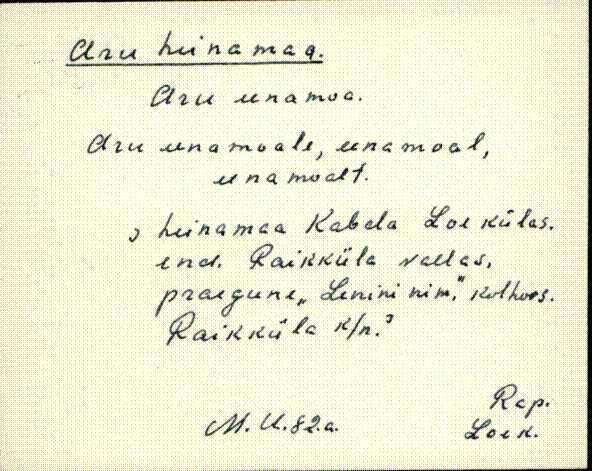 Aru heinamaa.
Aru einamoa.
Aru einamoale, einamoal,
einamoalt.
, heinamaa Kabala Loe külas.
end. Raikküla vallas,
praegune „Lenini nim." kolhoos.
Raikküla k/n.ʾ
M. U. 82.a.
Rap.
Loek.